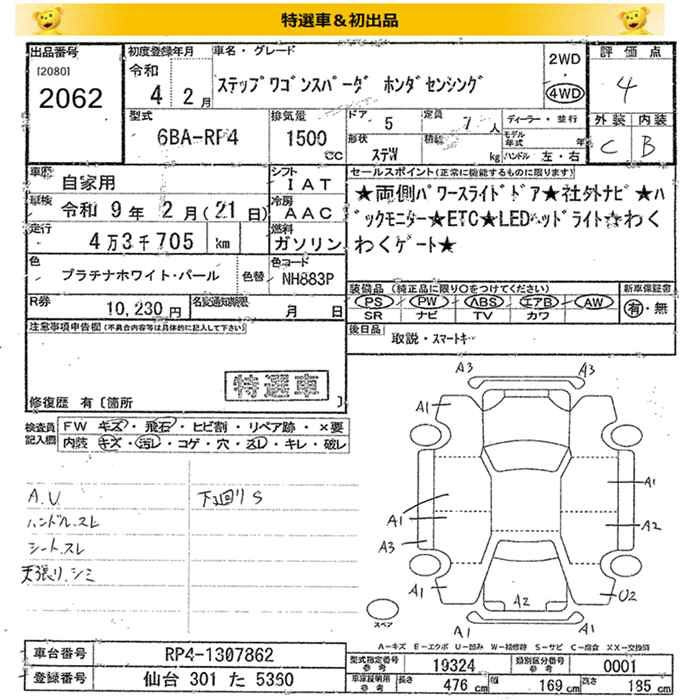 特選車＆初出品
出品番号
[2080]
2062
初度登録年月
令和
4 2月
車名・グレード
ステップワゴンスパーダ ホンダセンシング
2WD
4WD
評価点
4
外装 内装
C B
型式
6BA-RP4
排気量
1500
cc
ドア 5
定員 7 人
形状 ステW
積載 kg
ディーラー・並行
モデル年式 年
ハンドル 左・右
車歴 自家用
シフト IAT
車検 令和 9年 2月(21日)
冷房 AAC
走行 4万3千705 km
燃料 ガソリン
色 プラチナホワイト・パール
色替
色コード NH883P
R券 10,230円
名変通知期限 月 日
セールスポイント(正常に機能するものに限ります)
★両側パワースライドドア★社外ナビ★バ
ックモニター★ETC★LEDヘッドライト☆わく
わくゲート★
装備品 (純正品に限り○をつけてください)
新車保証書
PS PW ABS エアB AW
SR ナビ TV カワ
有・無
後日品 取説・スマートキー
注意事項申告欄(不具合内容等は具体的に記入して下さい)
特選車
修復歴 有〔箇所 〕
検査員記入欄
FW キズ・飛石・ヒビ割・リペア跡・×要
内装 キズ・汚レ・コゲ・穴・スレ・キレ・破レ
A.U
ハンドル.スレ
シート.スレ
天張り.シミ
下廻りS
A3 A3
A1 A1
A1
A1
A2
A3
A1
A2
U2
A1 A1
スペア
A-キズ E-エクボ U-凹み W-補修跡 S-サビ C-腐食 XX-交換済
車台番号 RP4-1307862
登録番号 仙台 301 た 5360
型式指定番号 参考 19324
類別区分番号 参考 0001
車庫証明用 参考 長さ 476 cm 幅 169 cm 高さ 185 cm